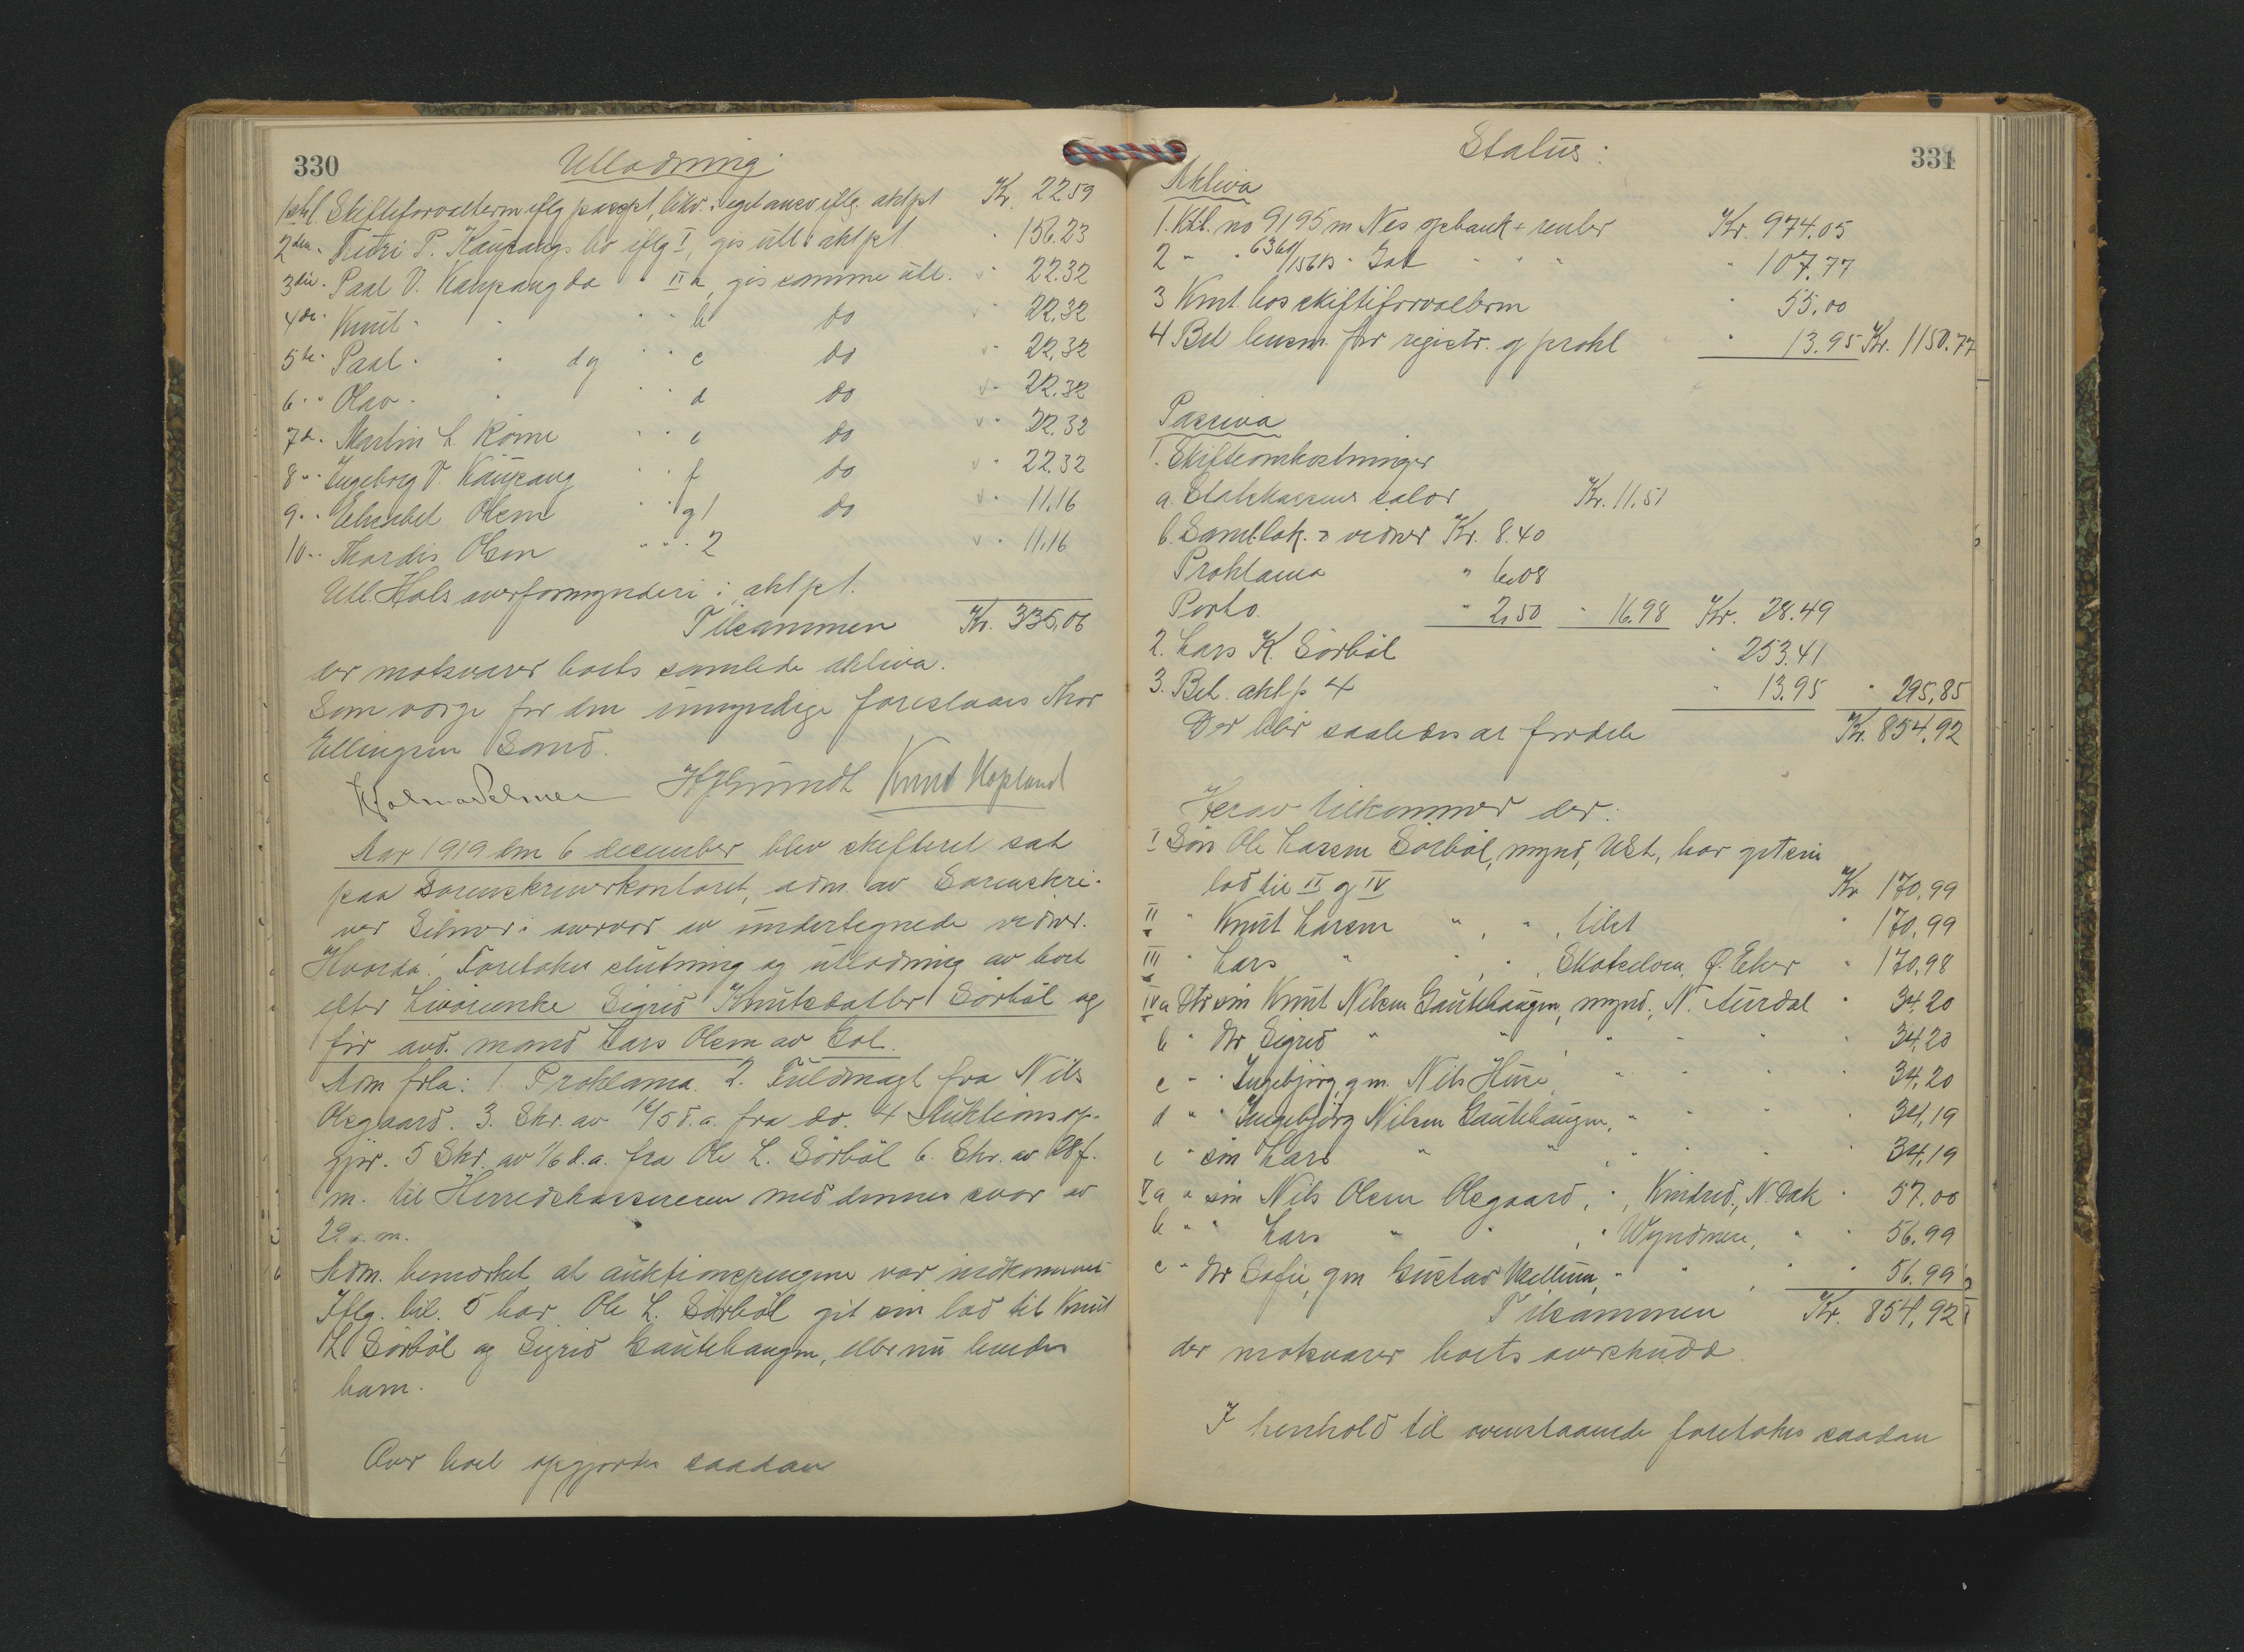 330
Utlodning:
1ste l. Skifteforvalteren iflg passpt, likv. i eget ansv iflg. aktpt Kr. 22.59
2den " P. Kaupangs bo iflg I, gis utl i aktpt " 156.23
3die " Paal V. Kaupang do " II a, gis samme utl. " 22.32
4de " Knut " " " " b do " 22.32
5te " Paal " " dy " " c do " 22.32
6 " " Olav " " " " d do " 22.32
7de " Martin L. " " e do " 22.32
8 " " Ingeborg V. Kaupang " " f do " 22.32
9 " " Elisabet Olsen " " g 1 do " 11.16
10 " " Thordis Olsen " " " 2 " 11.16
Utl. Hols overformynderi i aktpt.
Tilsammen Kr. 335,06
der motsvarer boets samlede aktiva.
Som verge for den umyndige foreslaaes Thor
Ellingsen Sand.
Knut Hopland
Aar 1919 den 6 december blev skifteret sat
paa Sorenskriverkontoret, adm. av Sorenskri-
ver Selmer i overvær av undertegnede vidner.
Hvorda! Foretokes slutning og utlodning av boet
efter Livørenke Sigrid Knutsdatter Sørbøl og
før avd. mand Lars Olsen av Gol.
Adm frla: 1. Proklama. 2. Fuldmagt fra Nils
Olsgaard. 3. Skr. av 16/5 d.a. fra do. 4 Auktionsop-
gjør. 5 Skr. av 1/6 d.a. fra Ole L. Sørbøl 6. Skr. av 28 f.
m. til Herredskassereren med dennes svar av
29 s. m.
Adm. bemerket at auktionspengene var indkommet
Iflg. bil. 5 har Ole L. Sørbøl git sin lod til Knut
L. Sørbøl og Sigrid Gautehaugen, eller nu hendes
barn.
Over boet opgjordes saadan
331
Status:
Aktiva
1. Ktb. no 9195 m Nes spbank + renter Kr. 974.05
2 " " 6361/15613 " Gol " " " " 107.77
3 Knt. hos skifteforvalteren " 55,00
4 Bet lensm. for registr. og prokl " 13.95 Kr. 1150.77
Passiva
1. Skifteomkostninger
a. Statskassens salær Kr. 11,51
b. Saml.lok. + vidner Kr. 8.40
Proklama " 6.08
Porto " 2,50 " 16.98 Kr. 28.49
2. Lars K. Sørbøl " 253.41
3. Bet. akt p 4 " 13.95 " 295,85
Der blir saaledes at fordele Kr. 854,92
Herav tilkommer der:
I Søn Ole Larsen Sørbøl, mynd, Ust, har git sin
lod til II og IV Kr 170,99
II " Knut Larsen " , " , tilst " 170,99
III " Lars " " , " , Skotselven, Ø. Eker " 170,98
IV a Dtr søn Knut Nilsen Gautehaugen, mynd., N. Aurdal " 34.20
b " dtr Sigrid " " , " " " 34,20
c " " Ingebjørg, gm. Nils Huse, " " " " 34,20
d " " Ingebjørg Nilsen Gautehaugen, " " " " 34,19
e " søn Lars " " , " " " " 34,19
V a " søn Nils Olsen Olsgaard, " , Kindred, N. Dak " 57.00
b " " Lars " " , " Wyndmere, " " 56.99
c " dtr Sofie, gm Gustav Mellum, " " , " " 56.99
Tilsammen Kr. 854,92
der motsvarer boets overskudd.
I henhold til ovenstaaende foretokes saadan